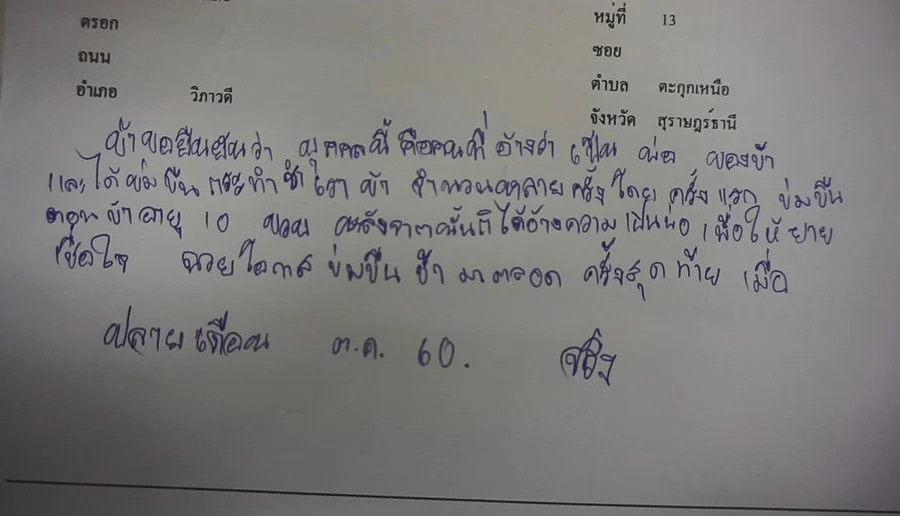 ตรอก หมู่ที่ 13
ถนน ซอย
อำเภอ วิภาวดี ตำบล ตะกุกเหนือ
จังหวัด สุราษฎร์ธานี
ข้าขอยืนยันว่า บุคคลนี้ คือคนที่ อ้างว่า เป็น พ่อ ของข้า
และได้ข่มขืน กระทำชำเรา ข้า จำนวนหลายครั้ง โดย ครั้งแรก ข่มขืน
ตอนข้าอายุ 10 ขวบ หลังจากนั้นก็ได้อ้างความเป็นพ่อ เพื่อให้ยาย
เชื่อใจ ฉวยโอกาส ข่มขืน ข้า มาตลอด ครั้งสุดท้าย เมื่อ
ปลายเดือน ต.ค. 60.